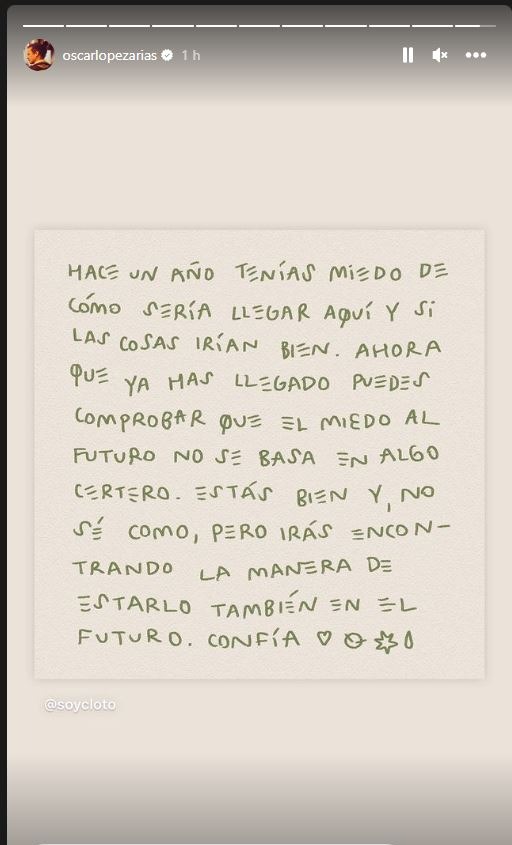 oscarlopezarias 1 h
HACE UN AÑO TENÍAS MIEDO DE
CÓMO SERÍA LLEGAR AQUÍ Y SI
LAS COSAS IRÍAN BIEN. AHORA
QUE YA HAS LLEGADO PUEDES
COMPROBAR QUE EL MIEDO AL
FUTURO NO SE BASA EN ALGO
CERTERO. ESTÁS BIEN Y, NO
SÉ COMO, PERO IRÁS ENCON-
TRANDO LA MANERA DE
ESTARLO TAMBIÉN EN EL
FUTURO. CONFÍA
@soycloto